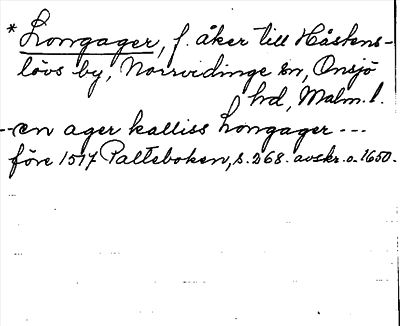 * Longager, f. åker till Håstens-
lövs by, Norrvidinge sn, Onsjö
hd, Malm. l.
--en ager kalliss Longager ---
före 1517 Palteboken, s. 268. avskr. o. 1650.